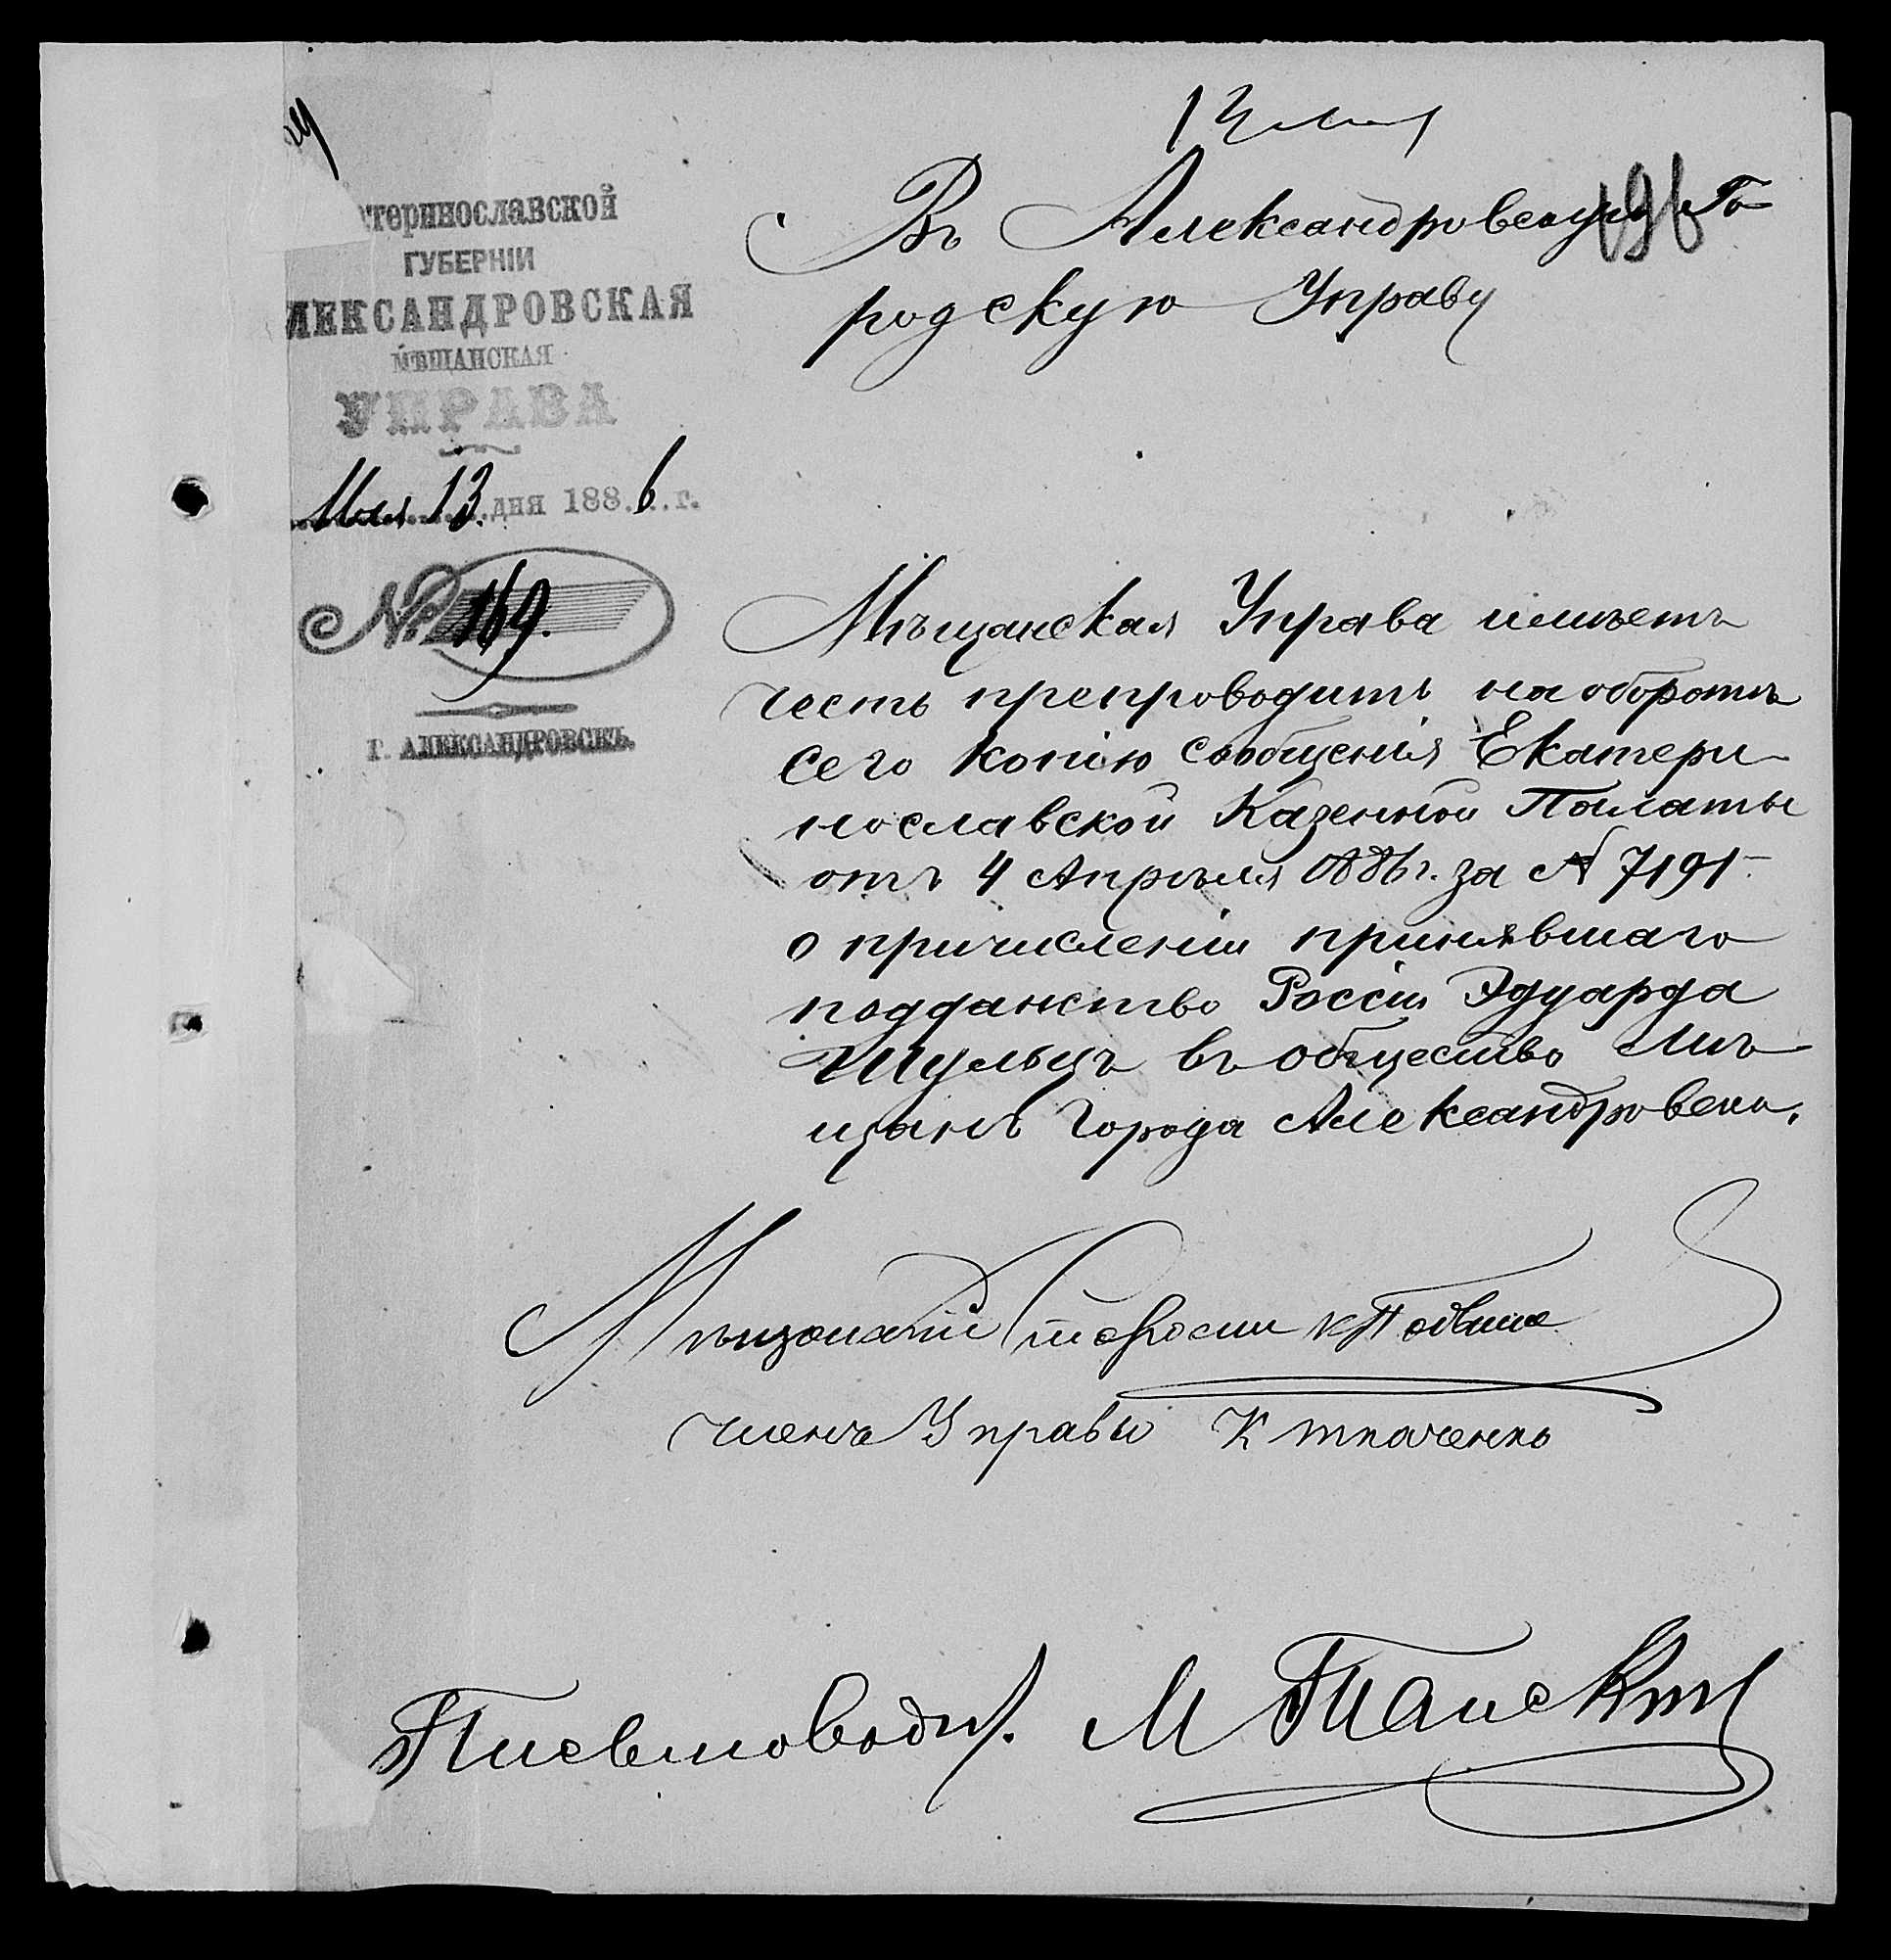 13 мая
196
теринославской
ГУБЕРНІИ
ЛЕКСАНДРОВСКАЯ
МѢЩАНСКАЯ
УПРАВА
Мая 13 дня 1886 г.
№ 169.
г. АЛЕКСАНДРОВСКЪ.
Въ Александровскую Го-
родскую Управу
Мѣщанская Управа имѣетъ
честь препроводить на оборотѣ
сего копію сообщенія Екатери-
нославской Казенной Палаты
отъ 4 Апрѣля 1886 г. за № 7191
о причисленіи принявшаго
подданство Россіи Эдуарда
Шульцъ въ общество Мѣ-
щанъ города Александровска.
Мѣщанскій Староста
члена Управы К Ткаченко
Письмоводит. М